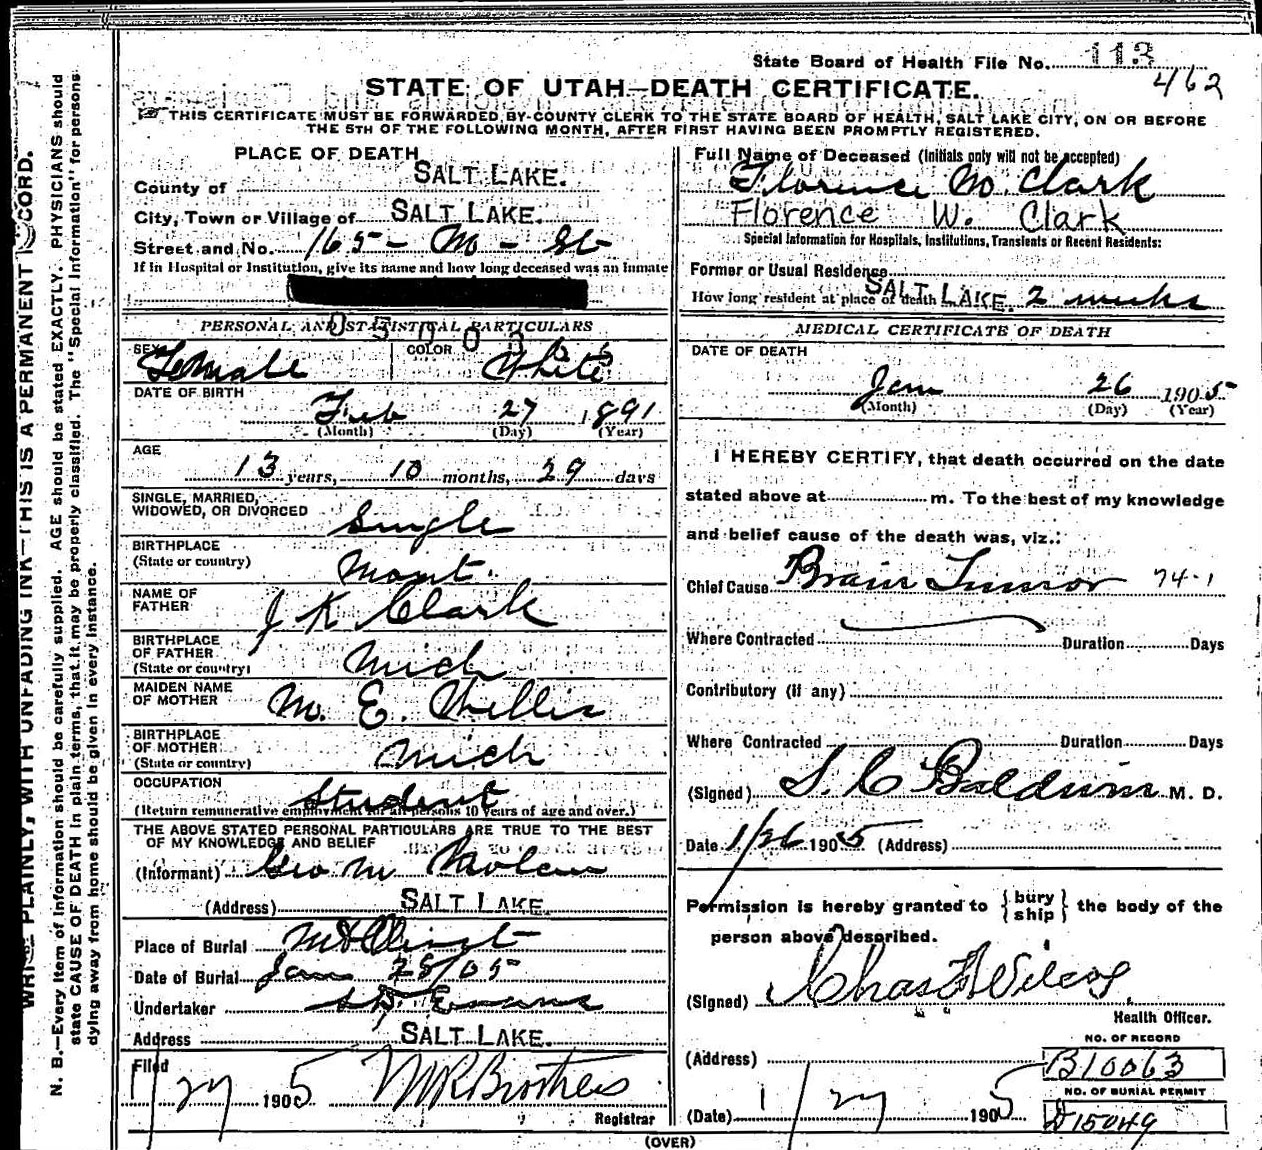 State Board of Health File No. 113
462
STATE OF UTAH—DEATH CERTIFICATE.
THIS CERTIFICATE MUST BE FORWARDED, BY COUNTY CLERK TO THE STATE BOARD OF HEALTH, SALT LAKE CITY, ON OR BEFORE
THE 5TH OF THE FOLLOWING MONTH, AFTER FIRST HAVING BEEN PROMPTLY REGISTERED.
PLACE OF DEATH
County of SALT LAKE.
City, Town or Village of SALT LAKE.
Street and No. 165 - M - St
If in Hospital or Institution, give its name and how long deceased was an inmate
PERSONAL AND STATISTICAL PARTICULARS
SEX Female COLOR White
DATE OF BIRTH
Feb 27 1891
(Month) (Day) (Year)
AGE
13 years, 10 months, 29 days
SINGLE, MARRIED,
WIDOWED, OR DIVORCED Single
BIRTHPLACE
(State or country) Mont.
NAME OF
FATHER J K Clark
BIRTHPLACE
OF FATHER
(State or country) Mich
MAIDEN NAME
OF MOTHER M. E.
BIRTHPLACE
OF MOTHER
(State or country) Mich
OCCUPATION Student
(Return remunerative employment for all persons 10 years of age and over.)
THE ABOVE STATED PERSONAL PARTICULARS ARE TRUE TO THE BEST
OF MY KNOWLEDGE AND BELIEF
(Informant) Geo M
(Address) SALT LAKE.
Place of Burial Mt Olivet
Date of Burial Jan 28/05
Undertaker Evans
Address SALT LAKE.
Filed
1/27 1905
Registrar
Full Name of Deceased (Initials only will not be accepted)
Florence W. Clark
Florence W. Clark
Special Information for Hospitals, Institutions, Transients or Recent Residents:
Former or Usual Residence
SALT LAKE.
How long resident at place of death 2 weeks
MEDICAL CERTIFICATE OF DEATH
DATE OF DEATH
Jan 26 1905
(Month) (Day) (Year)
I HEREBY CERTIFY, that death occurred on the date
stated above at m. To the best of my knowledge
and belief cause of the death was, viz.:
Chief Cause Brain Tumor 74-1
Where Contracted Duration Days
Contributory (if any)
Where Contracted Duration Days
(Signed) S. C. Baldwin M. D.
Date 1/26 1905 (Address)
Permission is hereby granted to { bury ship } the body of the
person above described.
(Signed) Chas F Wilcox,
Health Officer.
(Address)
NO. OF RECORD
B10063
NO. OF BURIAL PERMIT
D15049
(Date) 1/27 1905
(OVER)
WRITE PLAINLY, WITH UNFADING INK—THIS IS A PERMANENT RECORD.
N. B.—Every item of information should be carefully supplied. AGE should be stated EXACTLY. PHYSICIANS should
state CAUSE OF DEATH in plain terms, that it may be properly classified. The "Special Information" for persons
dying away from home should be given in every instance.